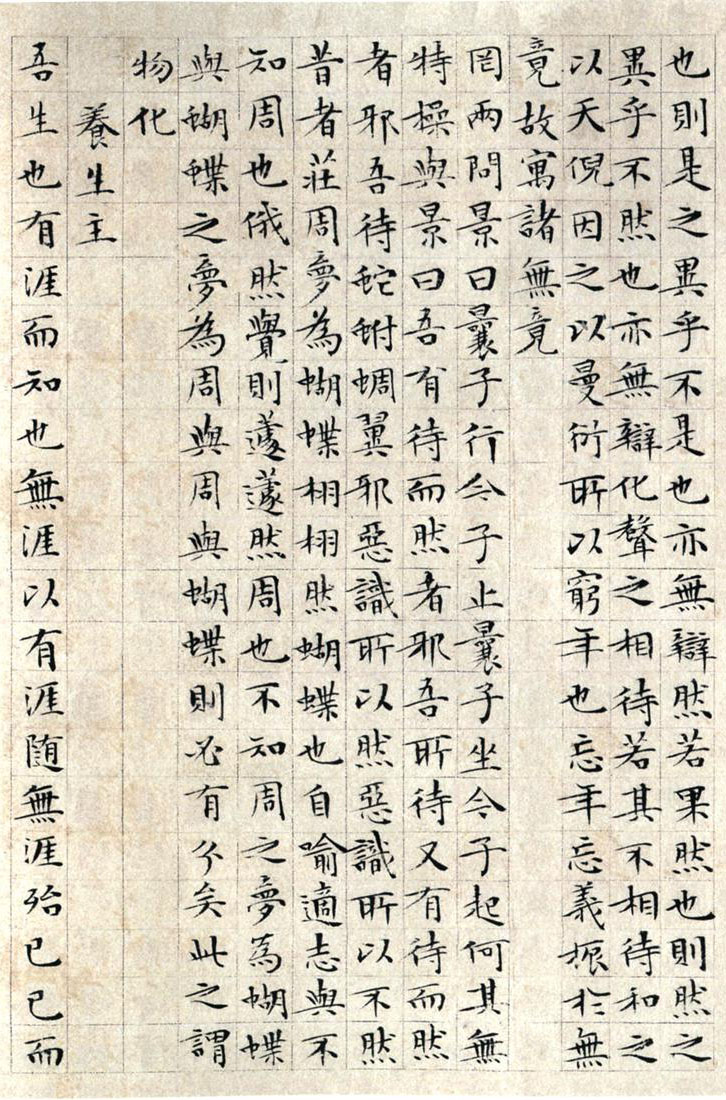 也則是之異乎不是也亦無辯然若果然也則然之
異乎不然也亦無辯化聲之相待若其不相待和之
以天倪因之以曼衍所以窮年也忘年忘義振於無
竟故寓諸無竟
罔兩問景曰曩子行今子止曩子坐今子起何其無
特操與景曰吾有待而然者邪吾所待又有待而然
者邪吾待蛇蚹蜩翼邪惡識所以然惡識所以不然
昔者莊周夢為蝴蝶栩栩然蝴蝶也自喻適志與不
知周也俄然覺則蘧蘧然周也不知周之夢為蝴蝶
與蝴蝶之夢為周與周與蝴蝶則必有分矣此之謂
物化
養生主
吾生也有涯而知也無涯以有涯随無涯殆已已而